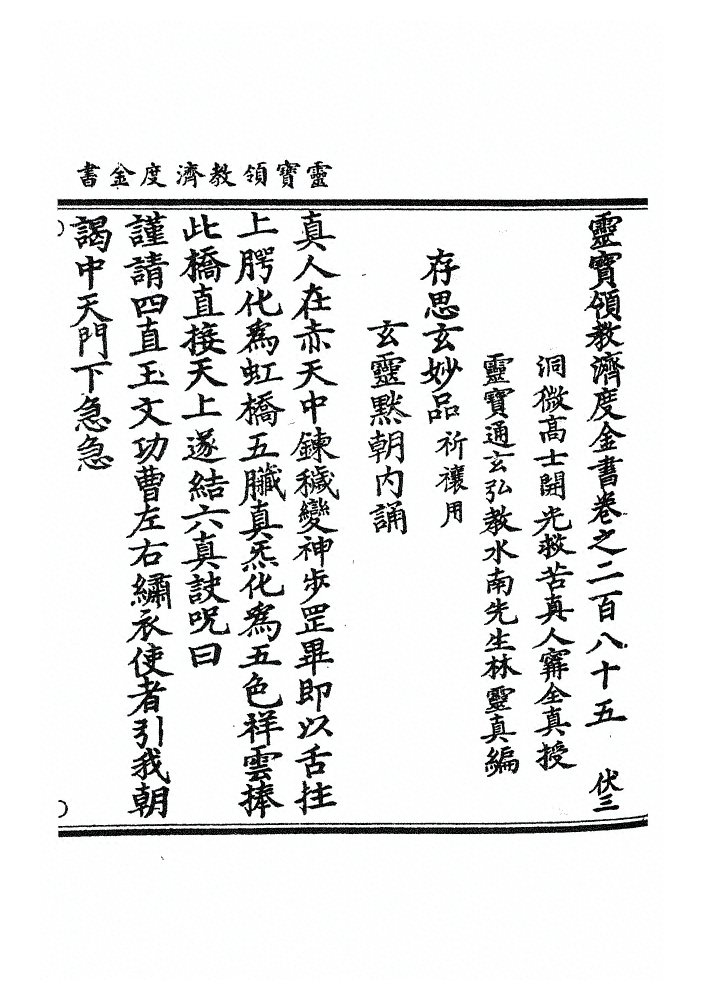 靈寶領教濟度金書
靈寶領教濟度金書卷之二百八十五 伏三
洞微高士開光救苦真人寗全真授
靈寶通玄弘教水南先生林靈真編
存思玄妙品 祈禳用
玄靈默朝內誦
真人在赤天中鍊穢變神步罡畢即以舌拄
上腭化為虹橋五臟真炁化為五色祥雲捧
此橋直接天上遂結六真訣呪曰
謹請四直玉文功曹左右繡衣使者引我朝
謁中天門下急急